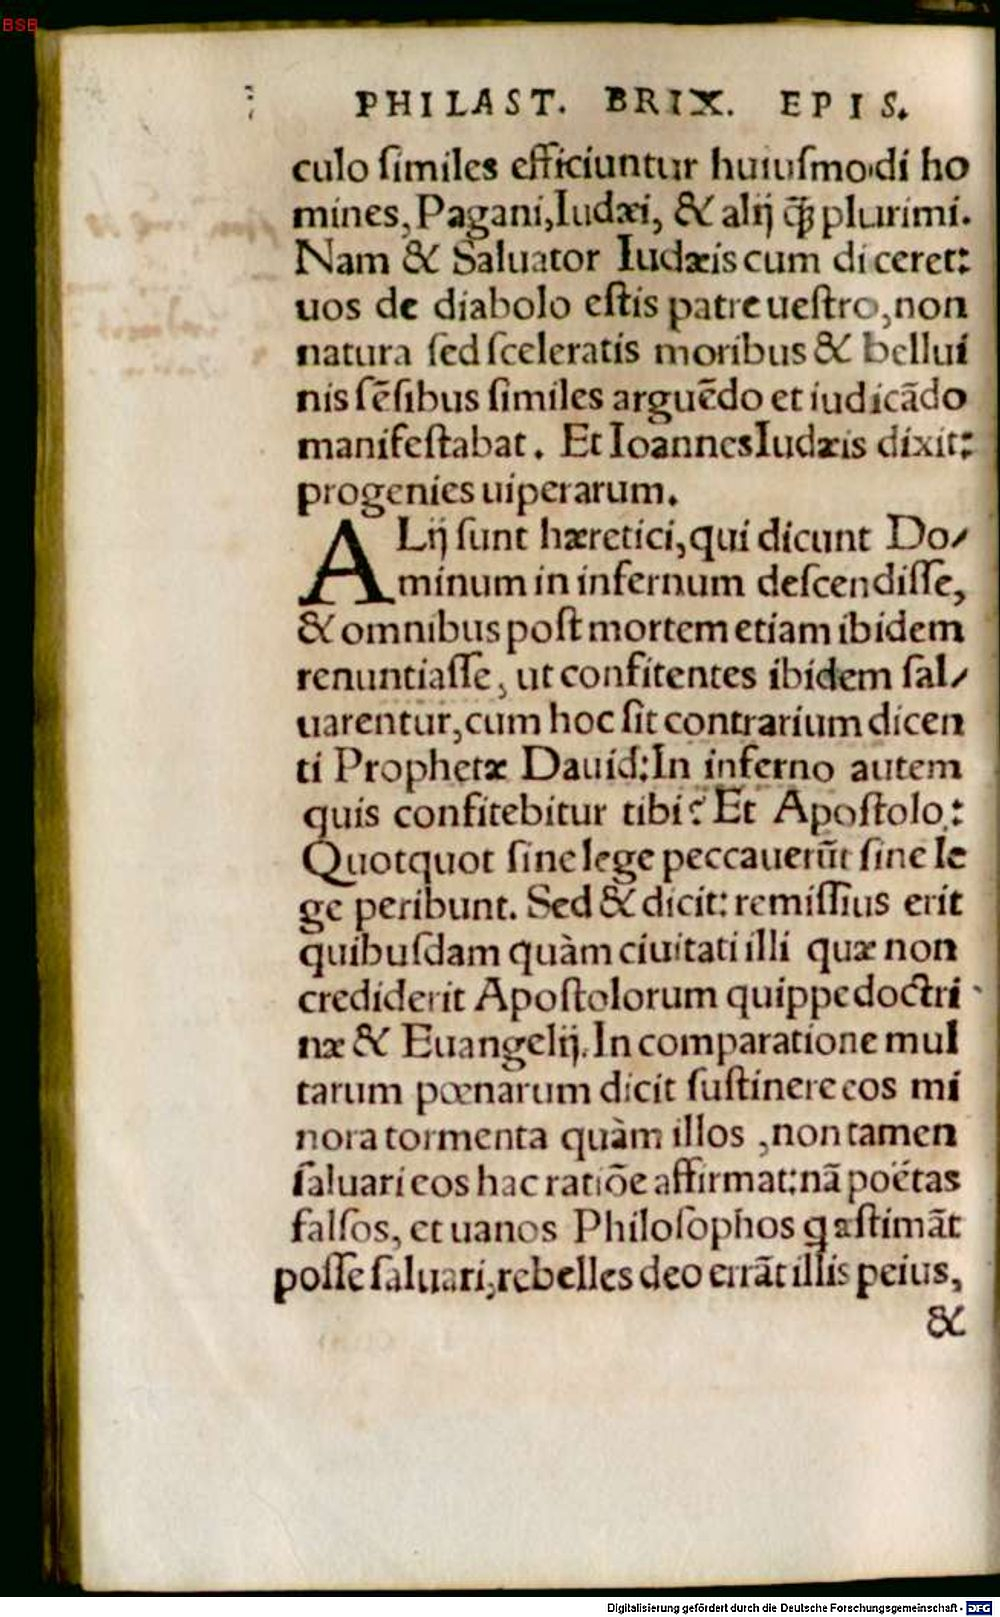 BSB
PHILAST. BRIX. EPIS.
culo ſimiles efficiuntur huiuſmodi ho
mines, Pagani, Iudæi, & alij q̃ꝫ plurimi.
Nam & Saluator Iudæis cum diceret:
uos de diabolo eſtis patre ueſtro, non
natura ſed ſceleratis moribus & bellui
nis ſẽſibus ſimiles arguẽdo et iudicãdo
manifeſtabat. Et Ioannes Iudæis dixit:
progenies uiperarum.
ALij ſunt hæretici, qui dicunt Do⸗
minum in infernum deſcendiſſe,
& omnibus poſt mortem etiam ibidem
renuntiaſſe, ut confitentes ibidem ſal⸗
uarentur, cum hoc ſit contrarium dicen
ti Prophetæ Dauid: In inferno autem
quis confitebitur tibi? Et Apoſtolo:
Quotquot ſine lege peccauerũt ſine le
ge peribunt. Sed & dicit: remiſſius erit
quibuſdam quàm ciuitati illi quæ non
crediderit Apoſtolorum quippe doctri
næ & Euangelij. In comparatione mul
tarum pœnarum dicit ſuſtinere eos mi
nora tormenta quàm illos, non tamen
ſaluari eos hac ratiõe affirmat: nã poëtas
falſos, et uanos Philoſophos q æſtimãt
poſſe ſaluari, rebelles deo errãt illis peius,
&
Digitalisierung gefördert durch die Deutsche Forschungsgemeinschaft - DFG